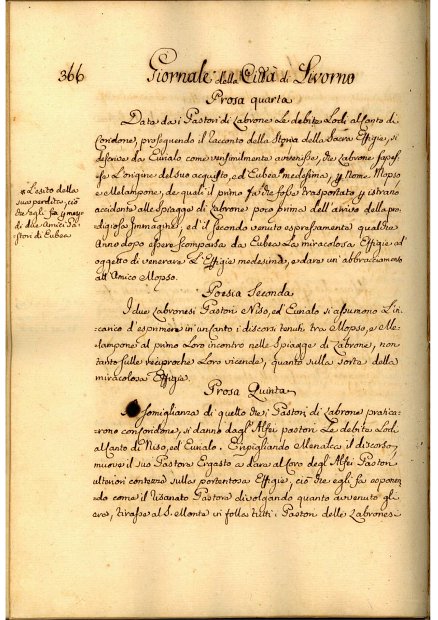 366 Giornale della Città di Livorno
Prosa quarta
Data da i Pastori di Labrone le debite Lodi al Canto di
Coridone, proseguendo il racconto della Storia della Sacra Effigie, si
descrive da Eunalo come verisimilmente avvenisse, che Labrone sapes-
se l'origine del suo acquisto, ed Eubea medesima, Mopso
e Melampone, de quali il primo fosse trasportato strano
accidente alle Spiagge di Labrone poco prima dell'arrivo della pro-
digiosa Immagine, ed il secondo venuto espressamente qualche
Anno dopo essere scomparsa da Eubea la miracolosa Effigie ad
oggetto di venerare l'Effigie medesima, e dare un'abbracciamento
all'Amico Mopso.
* L'esito della
sua perdita, ciò
che egli fa
di due Amici Pa-
stori di Eubea
Poesia Seconda
I due Labronesi Pastori Niso, ed Eunalo si assumono l'in-
carico d'esprimere in un Canto i discorsi tenuti tra Mopso, e Me-
lampone al primo loro incontro nelle Spiagge di Labrone, non
tanto sulle reciproche loro vicende, quanto sulla sorte della
miracolosa Effigie.
Prosa Quinta
A somiglianza di quello che i Pastori di Labrone pratica-
rono con Coridone, si danno dagl'Alfei pastori le debite Lodi
al Canto di Niso, ed Eunalo. Ripigliando Menalca il discorso,
muove il suo Pastore Ergasto a dare al coro degl'Alfei Pastori
ulteriori contezze sulla portentosa Effigie, ciò che egli fa esponen-
do come il risanato Pastore divolgando quanto avvenuto gli
era, tirasse al S. Monte in folla tutti i Pastori delle Labronesi